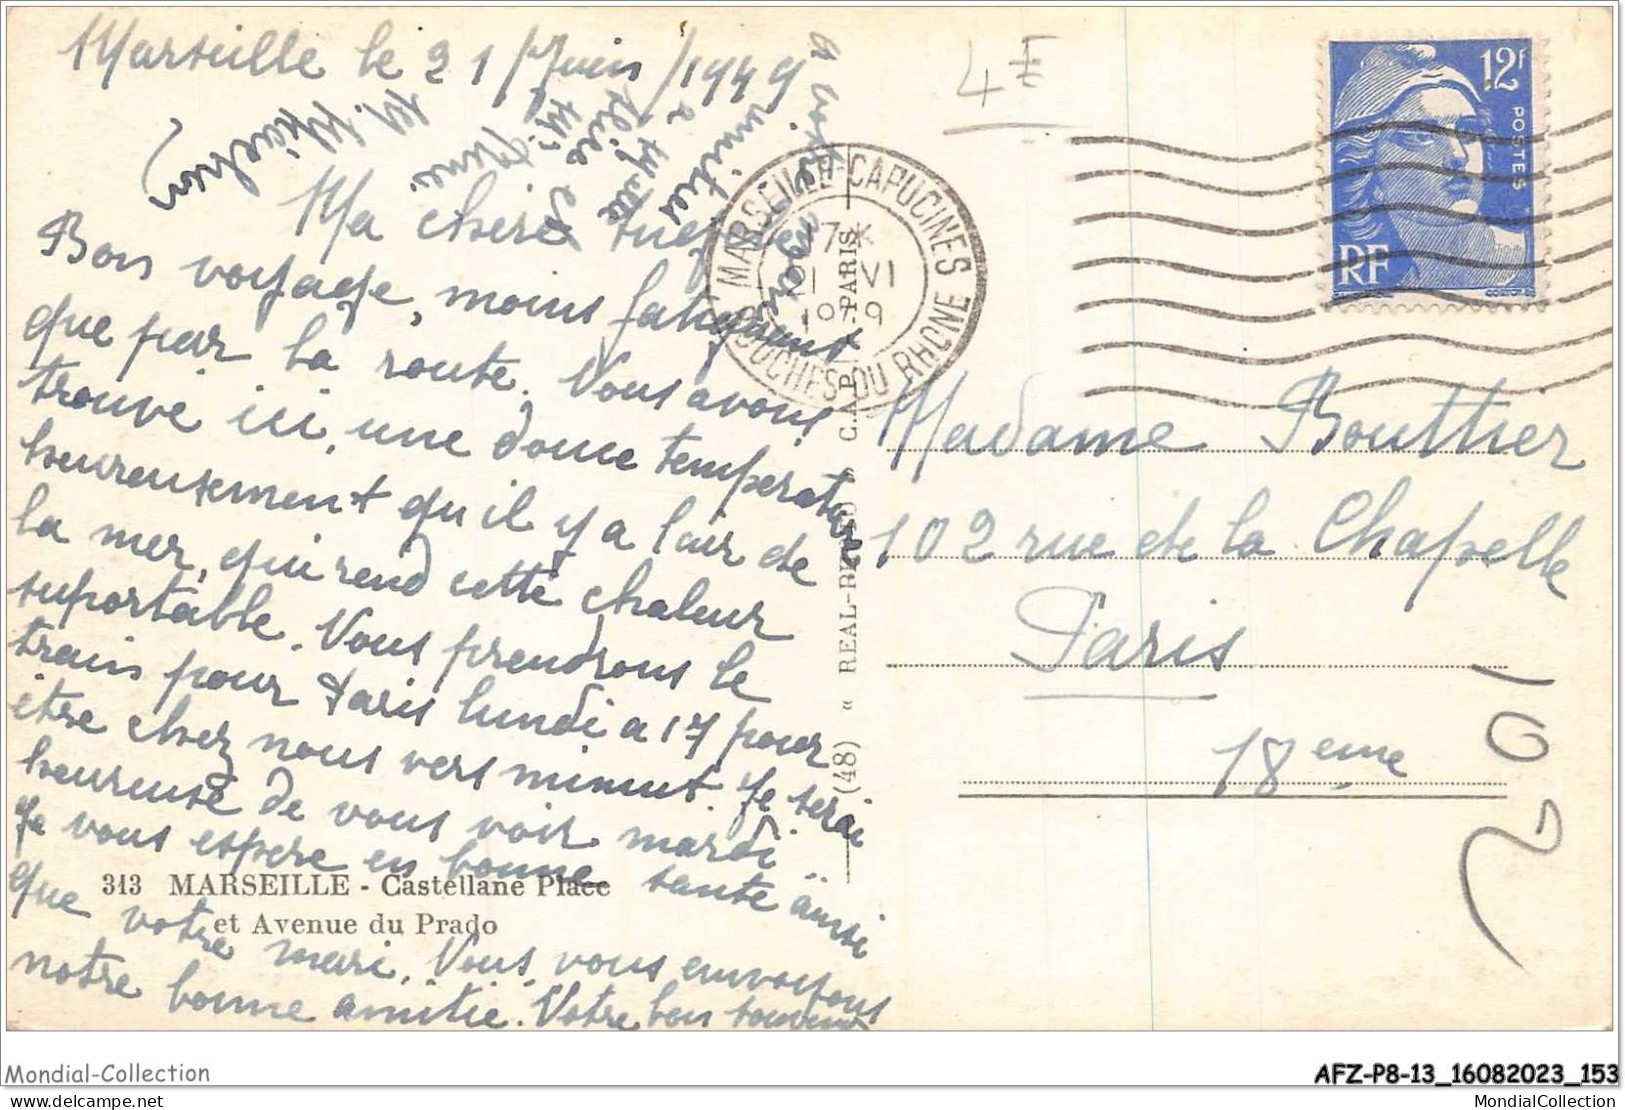 Marseille le 21 Juin/1949
4 E
12F
POSTES
RF
MARSEILLE-CAPUCINES
17 *
21 VI
1949
BOUCHES DU RHONE
Ma chere
Bon voyage, moins fatiguant
que par la route. Nous avons
trouve ici, une douce temperature
heureusement qu'il y a l'air de
la mer, qui rend cette chaleur
suportable. Nous prendrons le
train pour Paris lundi a 17 pour
être chez nous vers minuit. Je serai
heureuse de vous voir mardi
Je vous espere en bonne santé ainsi
que votre mari. Nous vous envoyons
notre bonne amitie. Votre
a votre
amities
a
et
M.
313 MARSEILLE - Castellane Place
et Avenue du Prado
(48) « REAL-
C.A.P. PARIS
Madame Bouttier
102 rue de la Chapelle
Paris
18eme
102
Mondial-Collection
AFZ-P8-13_16082023_153
MondialCollection